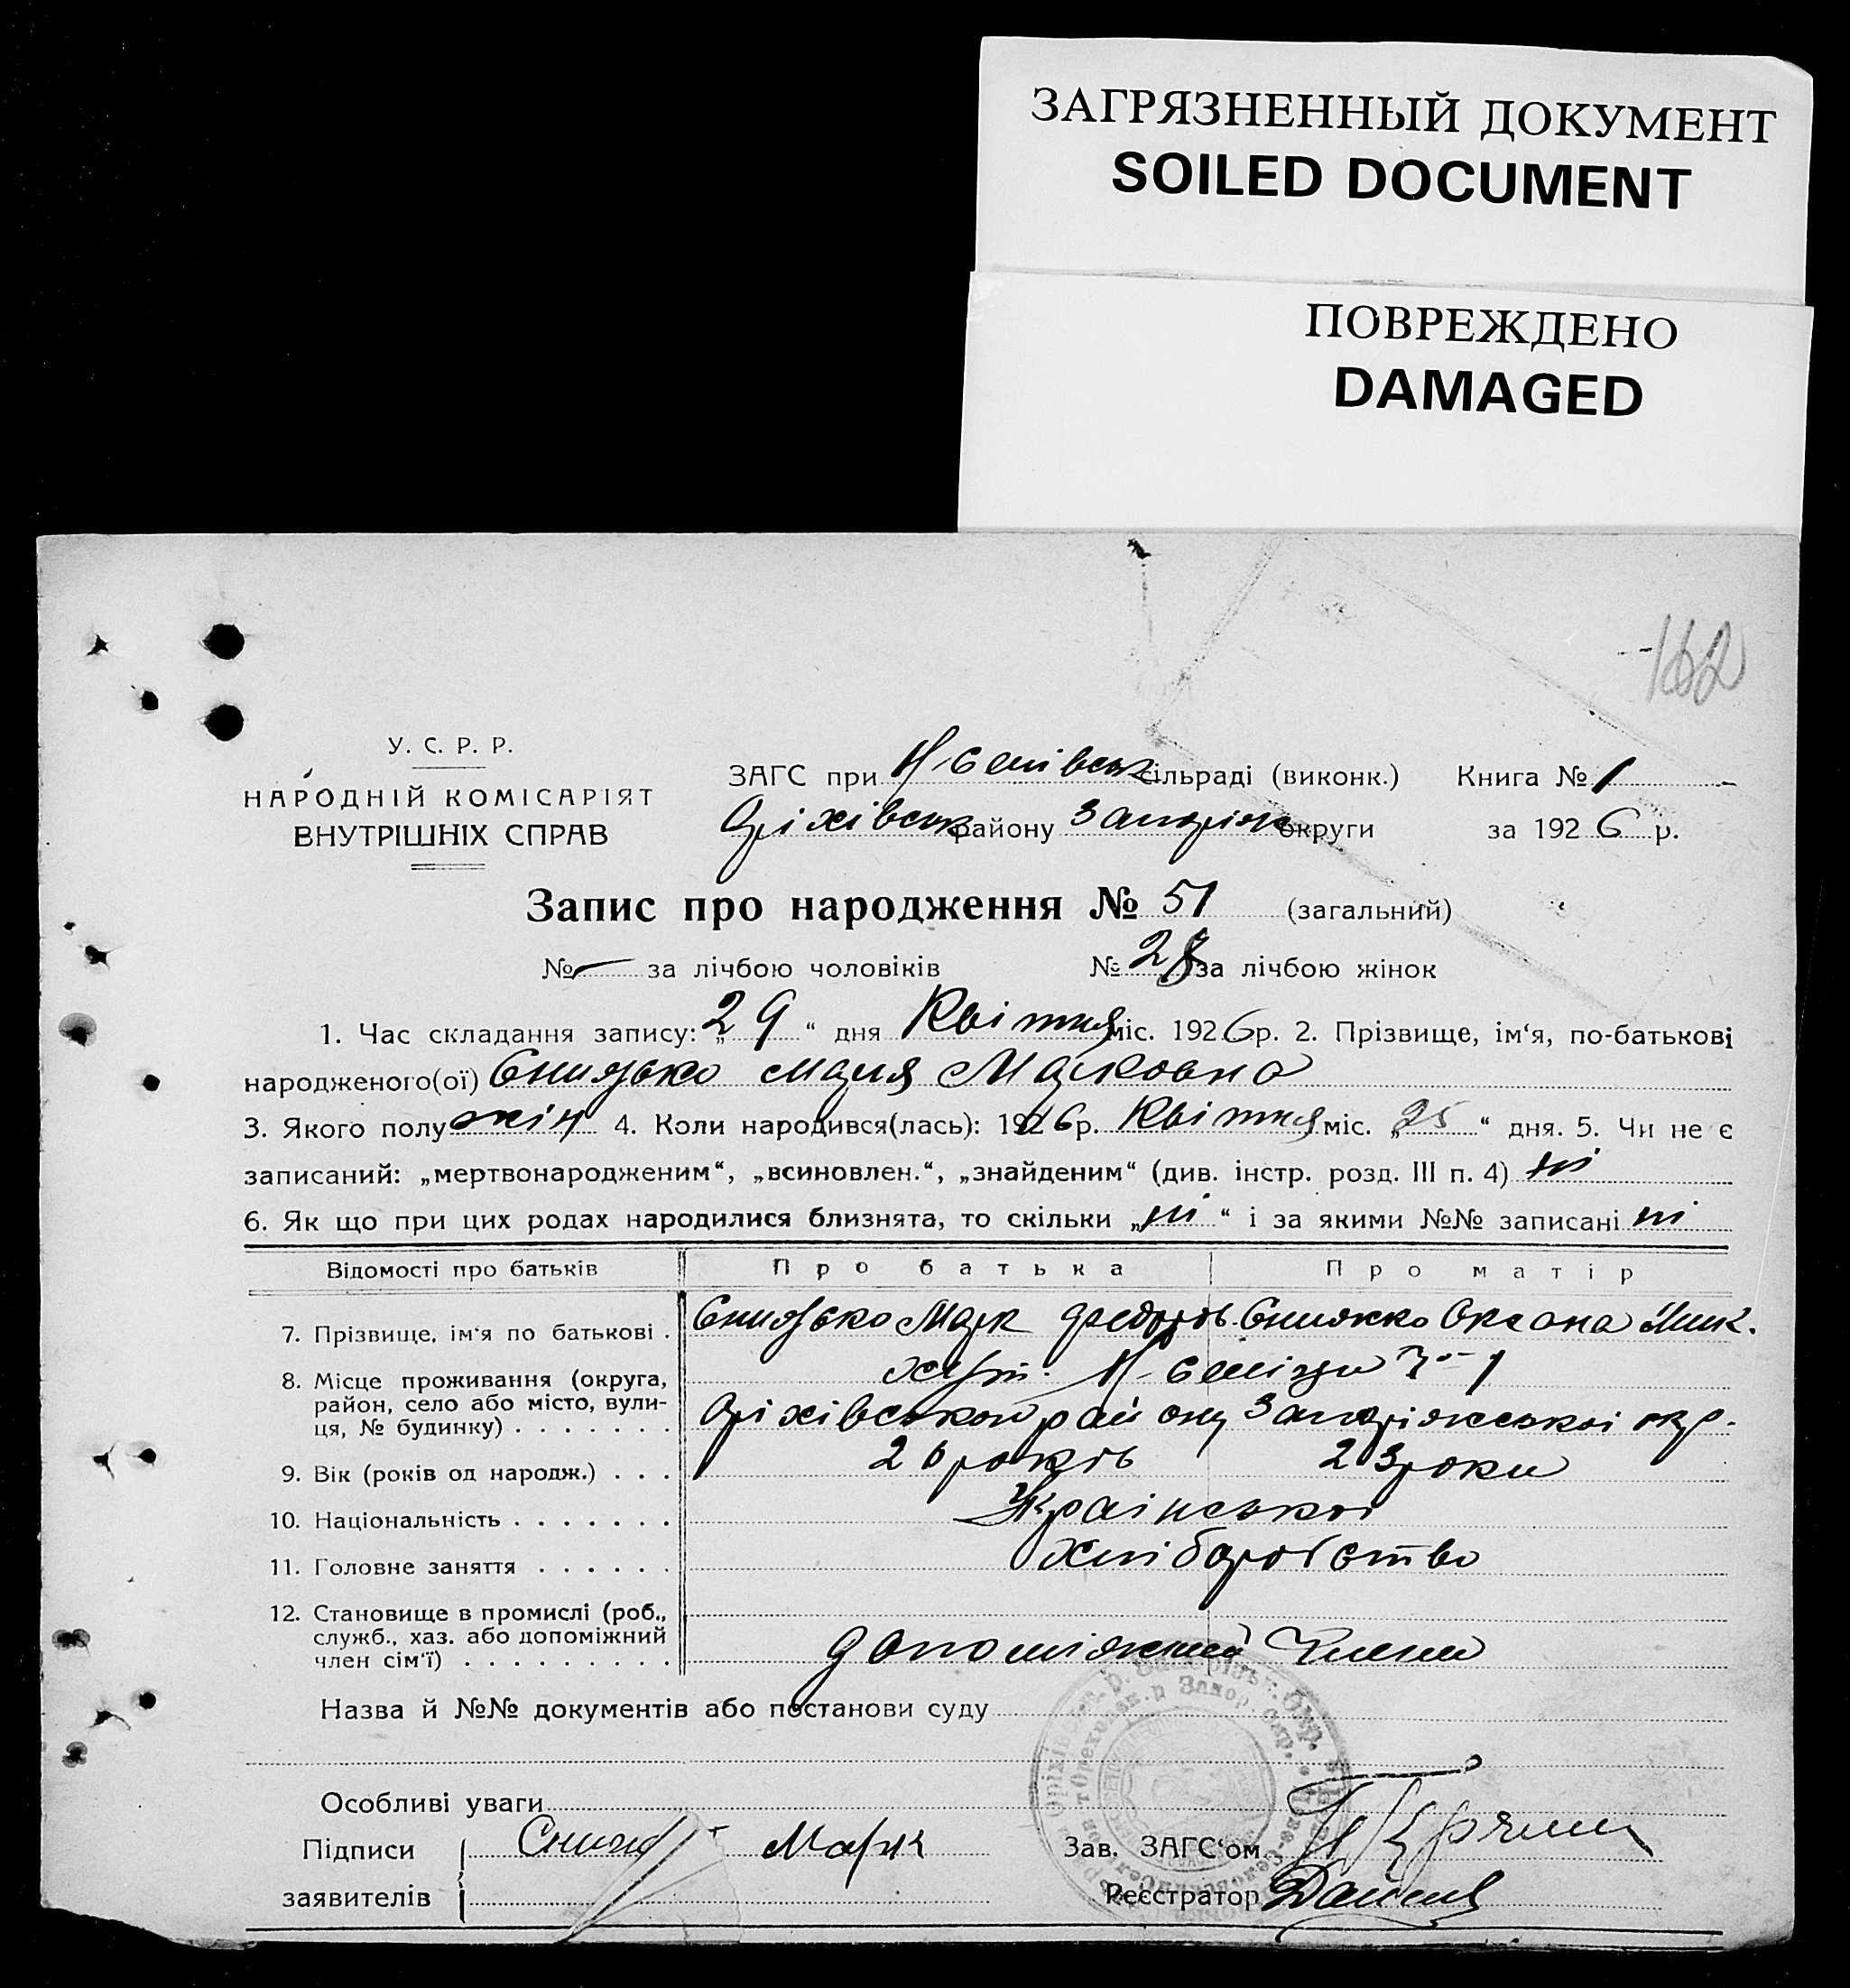 ЗАГРЯЗНЕННЫЙ ДОКУМЕНТ
SOILED DOCUMENT
ПОВРЕЖДЕНО
DAMAGED
162
У. С. Р. Р.
НАРОДНІЙ КОМІСАРІЯТ
ВНУТРІШНІХ СПРАВ
ЗАГС при сільраді (виконк.) Книга № 1
Оріхівськ району Запоріж округи за 1926 р.
Запис про народження № 51 (загальний)
№ — за лічбою чоловіків № 28 за лічбою жінок
1. Час складання запису: „29“ дня Квітня міс. 1926 р. 2. Прізвище, ім‘я, по-батькові
народженого(ої) Марія Марковна
3. Якого полу жін 4. Коли народився(лась): 1926 р. Квітня міс. „25“ дня. 5. Чи не є
записаний: „мертвонародженим“, „всиновлен.“, „знайденим“ (див. інстр. розд. III п. 4) ні
6. Як що при цих родах народилися близнята, то скільки „ні“ і за якими №№ записані ні
Відомості про батьків Про батька Про матір
7. Прізвище, ім‘я по батькові . Марк Федоров. Оксана Мик.
8. Місце проживання (округа, хут.
район, село або місто, вули-
ця, № будинку) . . . . . . . Оріхівського району Запоріжської окр.
9. Вік (років од народж.) . . . 26 років 23 роки
10. Національність . . . . . . . Української
11. Головне заняття . . . . . . Хліборобство
12. Становище в промислі (роб.,
служб., хаз. або допоміжний
член сім‘ї) . . . . . . . . . допоміжний члени
Назва й №№ документів або постанови суду
Особливі уваги
Підписи Марк Зав. ЗАГС‘ом
заявителів Реєстратор